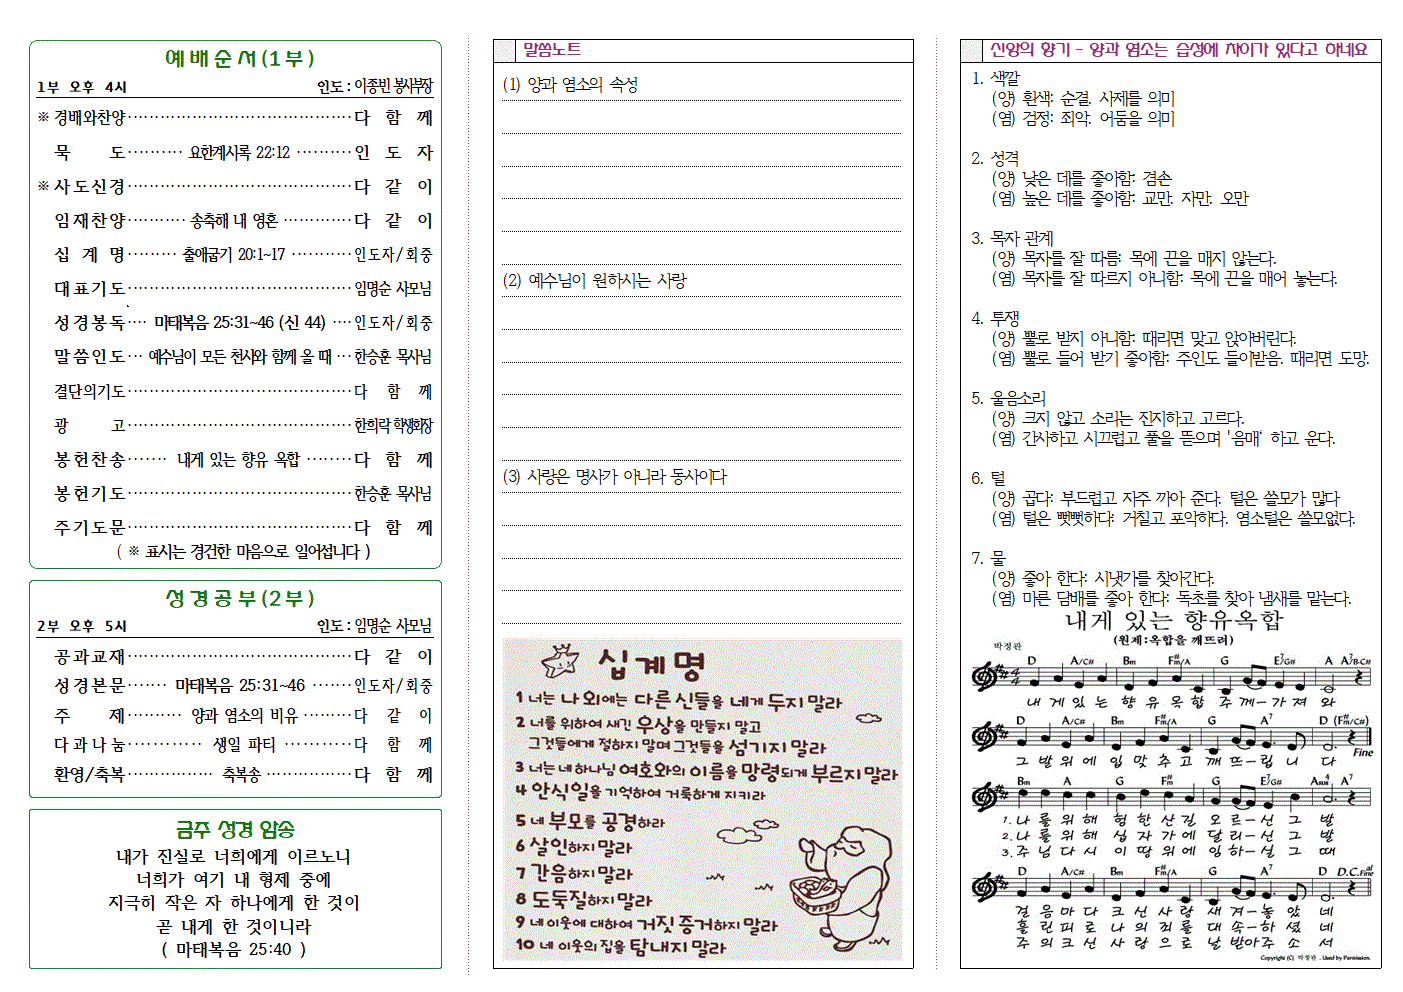 예배순서(1부)
1부 오후 4시 인도 : 이종빈 봉사부장
※ 경배와찬양 다 함 께
묵 도 요한계시록 22:12 인 도 자
※ 사도신경 다 같 이
임재찬양 송축해 내 영혼 다 같 이
십 계 명 출애굽기 20:1~17 인도자/회중
대표기도 임명순 사모님
성경봉독 마태복음 25:31~46 (신 44) 인도자/회중
말씀인도 예수님이 모든 천사와 함께 올 때 한승훈 목사님
결단의기도 다 함 께
광 고 한희락 학생회장
봉헌찬송 내게 있는 향유 옥합 다 함 께
봉헌기도 한승훈 목사님
주기도문 다 함 께
( ※ 표시는 경건한 마음으로 일어섭니다 )
성경공부(2부)
2부 오후 5시 인도 : 임명순 사모님
공과교재 다 같 이
성경본문 마태복음 25:31~46 인도자/회중
주 제 양과 염소의 비유 다 같 이
다과나눔 생일 파티 다 함 께
환영/축복 축복송 다 함 께
금주 성경 암송
내가 진실로 너희에게 이르노니
너희가 여기 내 형제 중에
지극히 작은 자 하나에게 한 것이
곧 내게 한 것이니라
( 마태복음 25:40 )
말씀노트
(1) 양과 염소의 속성
(2) 예수님이 원하시는 사랑
(3) 사랑은 명사가 아니라 동사이다
십계명
1 너는 나 외에는 다른 신들을 네게 두지 말라
2 너를 위하여 새긴 우상을 만들지 말고
그것들에게 절하지 말며 그것들을 섬기지 말라
3 너는 네 하나님 여호와의 이름을 망령되게 부르지 말라
4 안식일을 기억하여 거룩하게 지키라
5 네 부모를 공경하라
6 살인하지 말라
7 간음하지 말라
8 도둑질하지 말라
9 네 이웃에 대하여 거짓 증거하지 말라
10 네 이웃의 집을 탐내지 말라
신앙의 향기 - 양과 염소는 습성에 차이가 있다고 하네요
1. 색깔
(양) 흰색: 순결. 사제를 의미
(염) 검정: 죄악. 어둠을 의미
2. 성격
(양) 낮은 데를 좋아함: 겸손
(염) 높은 데를 좋아함: 교만. 자만. 오만
3. 목자 관계
(양) 목자를 잘 따름: 목에 끈을 매지 않는다.
(염) 목자를 잘 따르지 아니함: 목에 끈을 매어 놓는다.
4. 투쟁
(양) 뿔로 받지 아니함: 때리면 맞고 앉아버린다.
(염) 뿔로 들어 받기 좋아함: 주인도 들이받음. 때리면 도망.
5. 울음소리
(양) 크지 않고 소리는 진지하고 고르다.
(염) 간사하고 시끄럽고 풀을 뜯으며 '음매' 하고 운다.
6. 털
(양) 곱다: 부드럽고 자주 까아 준다. 털은 쓸모가 많다
(염) 털은 뻣뻣하다: 거칠고 포악하다. 염소털은 쓸모없다.
7. 물
(양) 좋아 한다: 시냇가를 찾아간다.
(염) 마른 담배를 좋아 한다: 독초를 찾아 냄새를 맡는다.
내게 있는 향유옥합
(원제:옥합을 깨뜨려)
박정관
D A/C# Bm F#m/A G E7/G# A A7B-C#
내 게 있 는 향 유 옥 합 주 께-가 져 와
D A/C# Bm F#m/A G A7 D (F#/C#)
Fine
그 발 위 에 입 맞 추 고 깨 뜨-립 니 다
Bm A G F#m G D E7/G# Asus4 A7
1. 나 를 위 해 험 한 산 길 오 르-신 그 발
2. 나 를 위 해 십 자 가 에 달 리-신 그 발
3. 주 님 다 시 이 땅 위 에 임 하-실 그 때
D A/C# Bm F#m/A G A7 D D.C. al Fine
걸 음 마 다 크 신 사 랑 새 겨-놓 았 네
흘 린 피 로 나 의 죄 를 대 속-하 셨 네
주 의 크 신 사 랑 으 로 날 받아주 소 서
Copyright (C) 박정관 . Used by Permission.